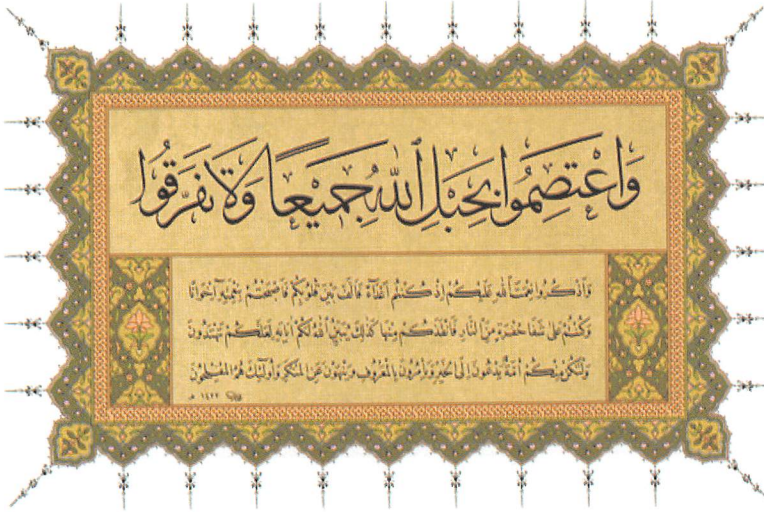 وَاعْتَصِمُوا بِحَبْلِ ٱللَّهِ جَمِيْعًا وَلَا تَفَرَّقُوا
وَاذْكُرُوا نِعْمَتَ اللَّهِ عَلَيْكُمْ إِذْ كُنْتُمْ أَعْدَآءً فَأَلَّفَ بَيْنَ قُلُوبِكُمْ فَأَصْبَحْتُمْ بِنِعْمَتِهِ إِخْوَانًا
وَكُنْتُمْ عَلَى شَفَا حُفْرَةٍ مِنَ النَّارِ فَأَنْقَذَكُمْ مِنْهَا كَذَلِكَ يُبَيِّنُ اللَّهُ لَكُمْ آيَاتِهِ لَعَلَّكُمْ تَهْتَدُونَ
وَلْتَكُنْ مِنْكُمْ أُمَّةٌ يَدْعُونَ إِلَى الْخَيْرِ وَيَأْمُرُونَ بِالْمَعْرُوفِ وَيَنْهَوْنَ عَنِ الْمُنْكَرِ وَأُولَئِكَ هُمُ الْمُفْلِحُونَ